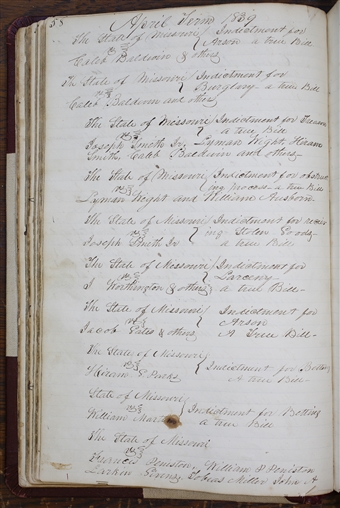 58
April Term 1839
The State of Missouri } Indictment for
vs } Arson a true Bill
Caleb Baldwin & others
The State of Missouri } Indictment for
vs } Burglary a true Bill
Caleb Baldwin and others
The State of Missouri } Indictment for Treason
vs } a true Bill
Joseph Smith Jr. Lyman Wight Hiram
Smith, Caleb Baldwin and others
The State of Missouri } Indictment for obstruct
vs } ing process a true Bill
Lyman Weight and William
The State of Missouri } Indictment for receiv
vs } ing Stolen Goods
Joseph Smith Jr } a true Bill
The State of Missouri } Indictment for
vs } Larceny
J Worthington & others } a true Bill
The State of Missouri } Indictment for
vs } Arson
Jacob Gates & others } A True Bill
The State of Missouri
vs } Indictment for Betting
Hiram E Parks } A true Bill
State of Missouri
vs } Indictment for Betting
William } a true Bill
The State of Missouri
vs
William P Peniston
Tobias Miller John A